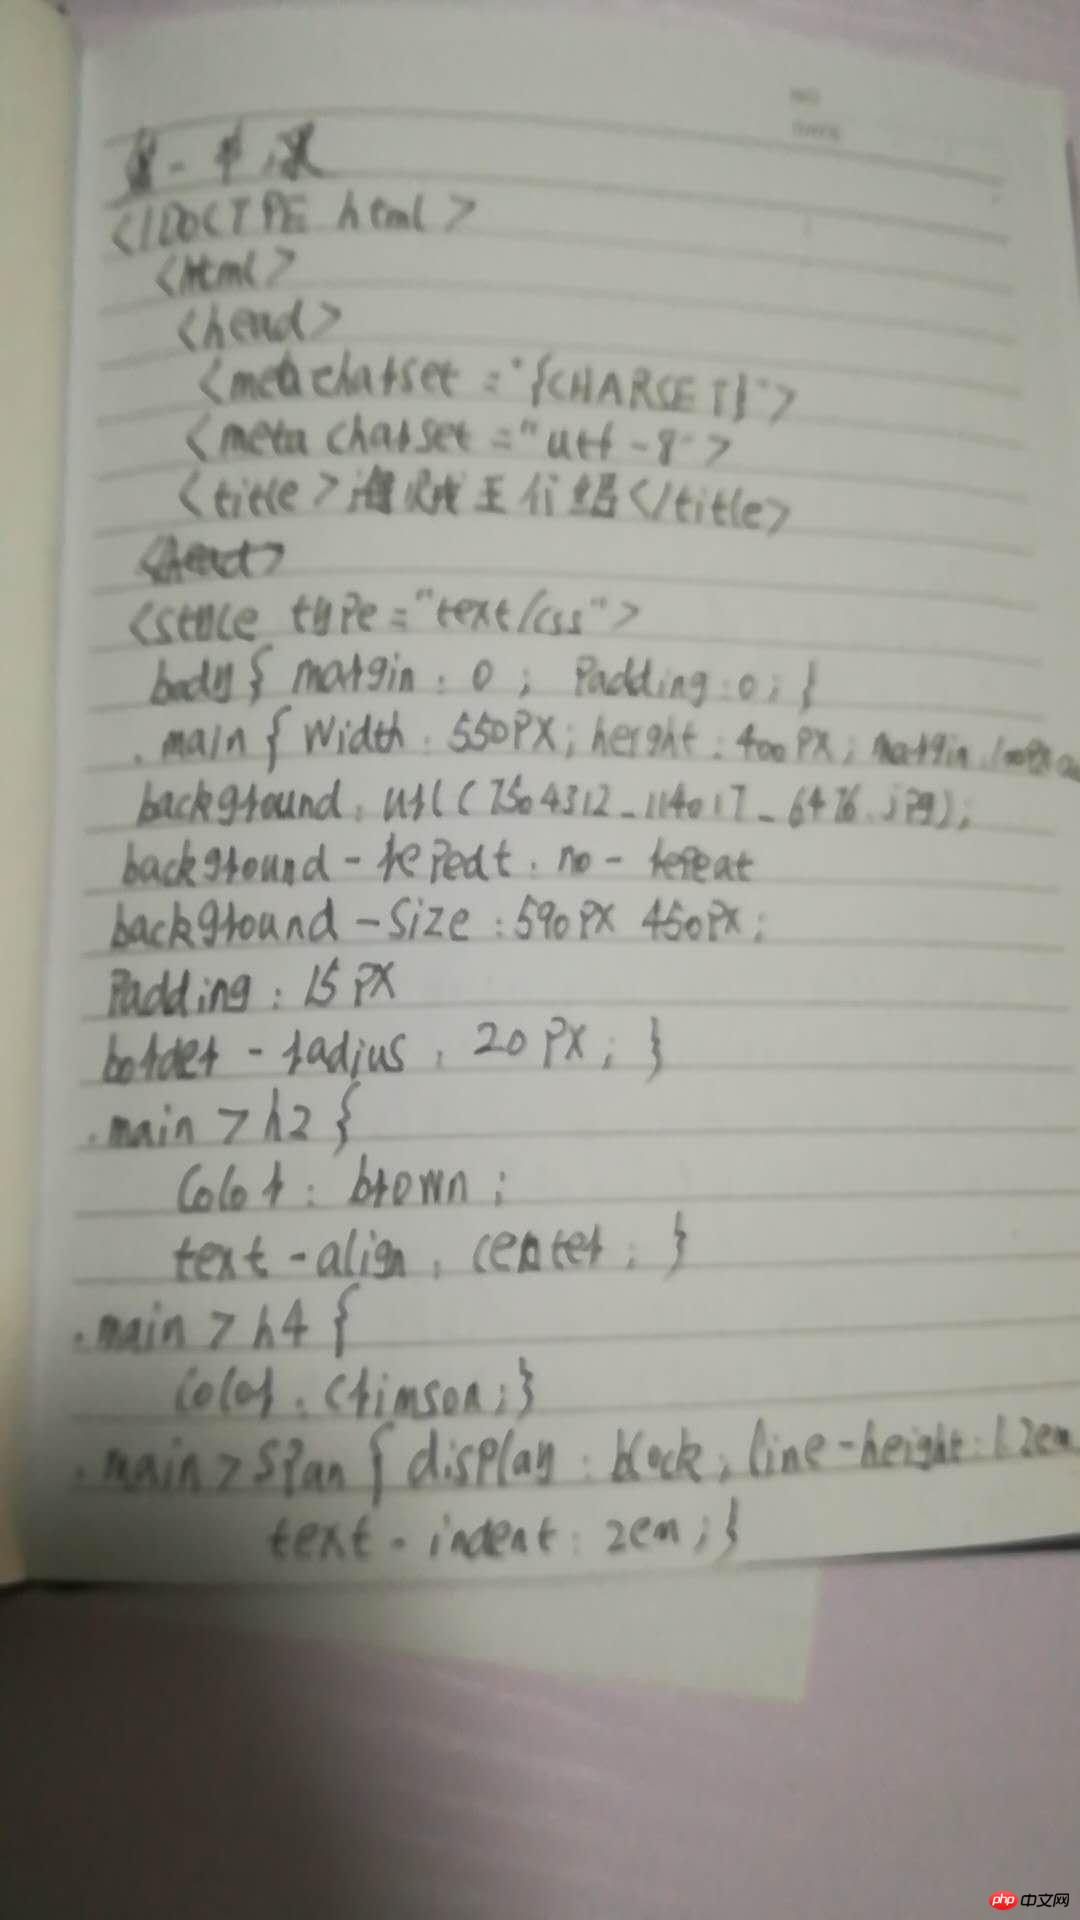 NO
DATE
第一节课
<!DOCTYPE html>
<html>
<head>
<meta charset="{CHARSET}">
<meta charset="utf-8">
<title>海贼王介绍</title>
<head>
<style type="text/css">
body{ margin: 0; Padding:0; }
.main{ width: 550PX; height: 400PX; margin: 100PX
background: url(7504312_114017_6476.jpg);
background-repeat: no-repeat
background-size: 590PX 450PX;
Padding: 15PX
border-radius: 20PX; }
.main>h2 {
Color: brown;
text-align: center; }
.main>h4 {
Color: crimson; }
.main>span { display: block; line-height: 1.2em
text-indent: 2em; }
php 中文网